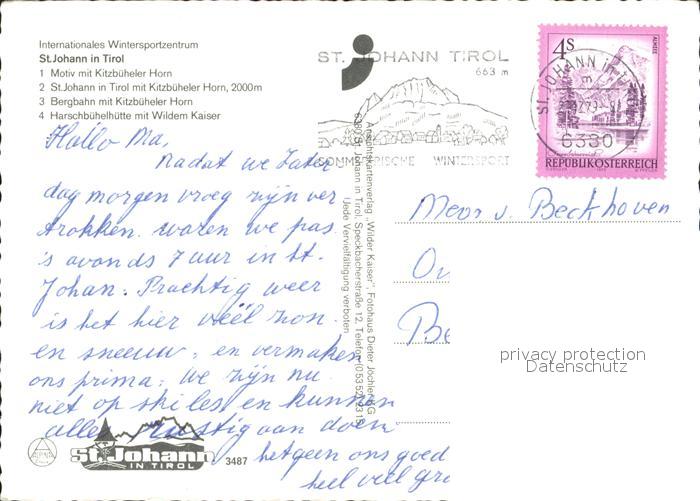 Internationales Wintersportzentrum
St.Johann in Tirol
1 Motiv mit Kitzbüheler Horn
2 St.Johann in Tirol mit Kitzbüheler Horn, 2000m
3 Bergbahn mit Kitzbüheler Horn
4 Harschbühelhütte mit Wildem Kaiser
Hallo Ma,
Nadat we Zater
dag morgen vroeg zijn ver
trokken. waren we pas
's avonds 7 uur in St.
Johan. Prachtig weer
is het hier veel zon.
en sneeuw, en vermaken
ons prima, we zijn nu
niet op ski les en kunnen
alles rustig aan doen
hetgeen ons goed
heel veel gro
St.Johann
IN TIROL
3487
Ansichtskartenverlag „Wilder Kaiser", Fotohaus Dieter Jöchler KG
6380 St. Johann in Tirol, Speckbacherstraße 12, Telefon (05352)
Jede Vervielfältigung verboten
ST. JOHANN TIROL
663 m
SOMMERFRISCHE WINTERSPORT
4S
ALMSEE
REPUBLIK ÖSTERREICH
ST. JOHANN in T
6380
Mevr v. Beckhoven
privacy protection
Datenschutz